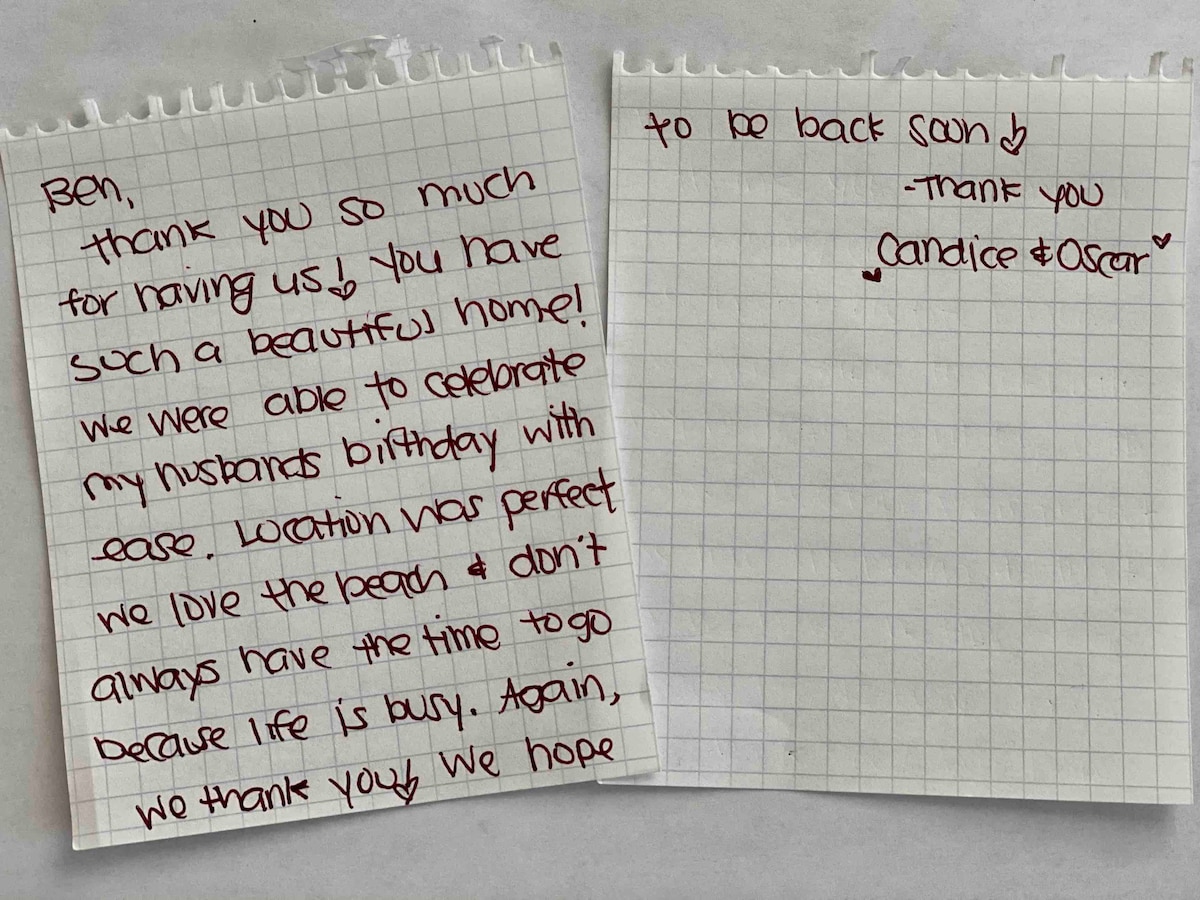 Ben,
thank you so much
for having us! You have
such a beautiful home!
we were able to celebrate
my husbands birthday with
ease. Location was perfect
we love the beach & don't
always have the time to go
because life is busy. Again,
we thank you! We hope
to be back soon!
-Thank you
Candice & Oscar